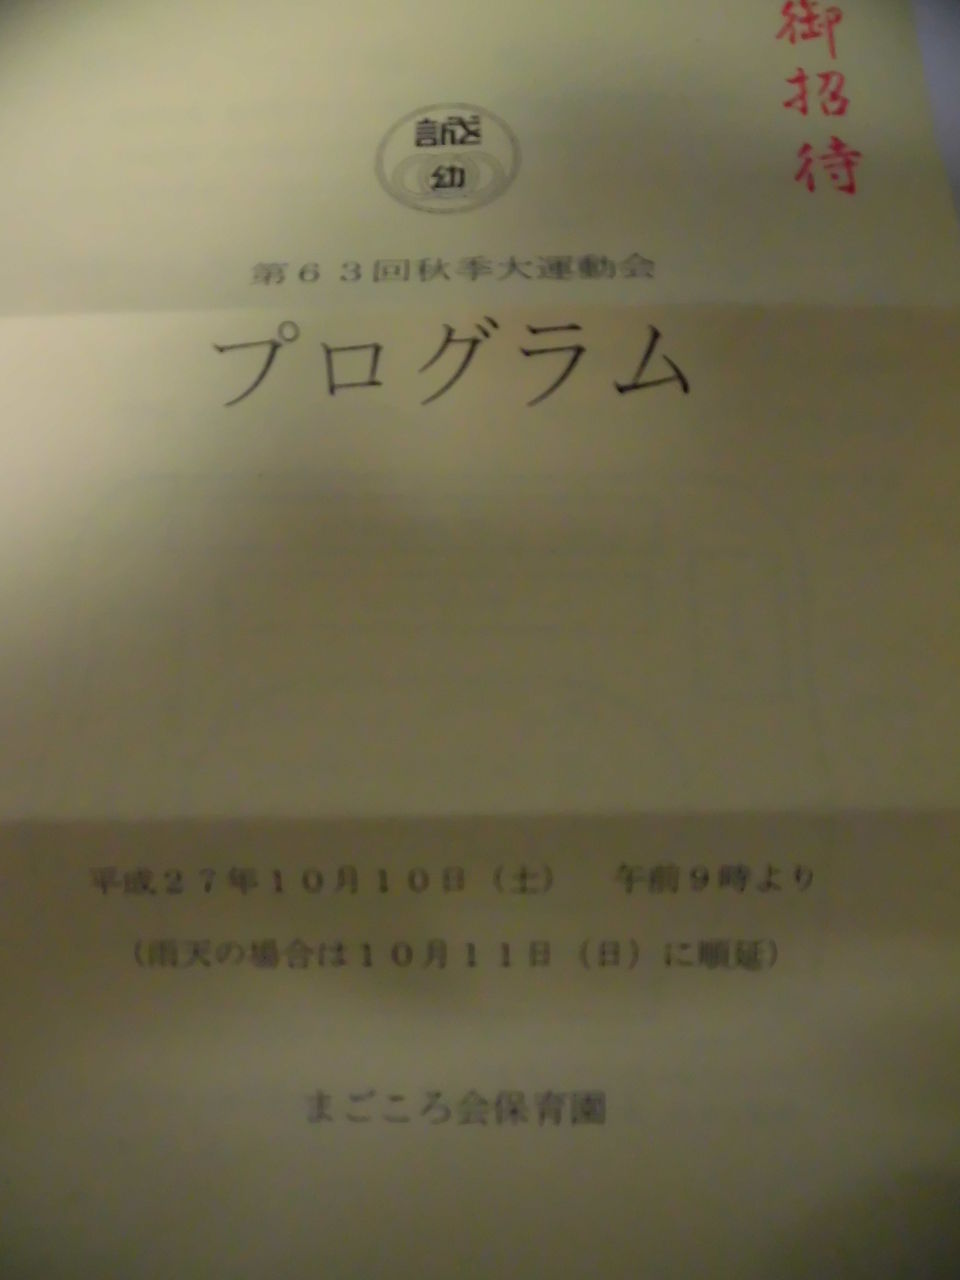 御招待
誠
幼
第63回秋季大運動会
プログラム
平成27年10月10日（土）　午前9時より
（雨天の場合は10月11日（日）に順延）
まごころ会保育園